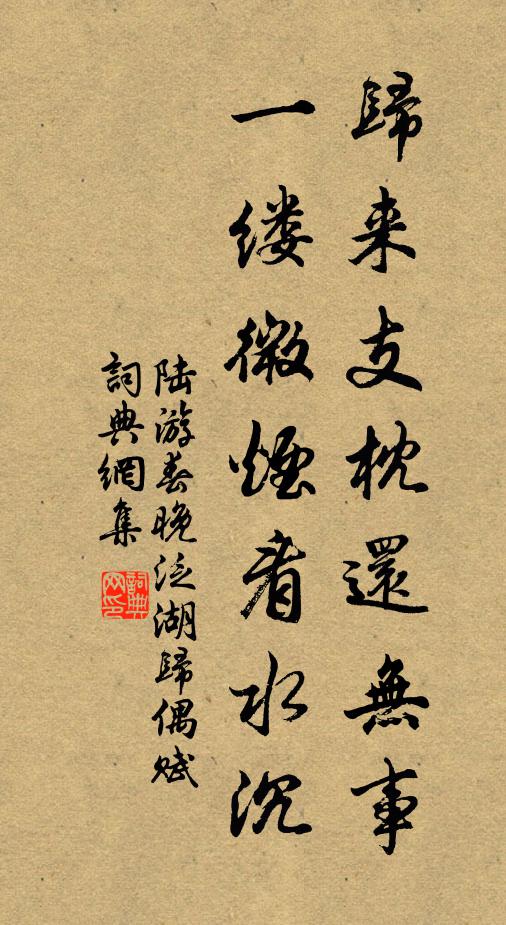 歸来支枕還無事
一缕微煙看水沉
陆游春晚泛湖歸偶赋
詞典網集
詞典網印